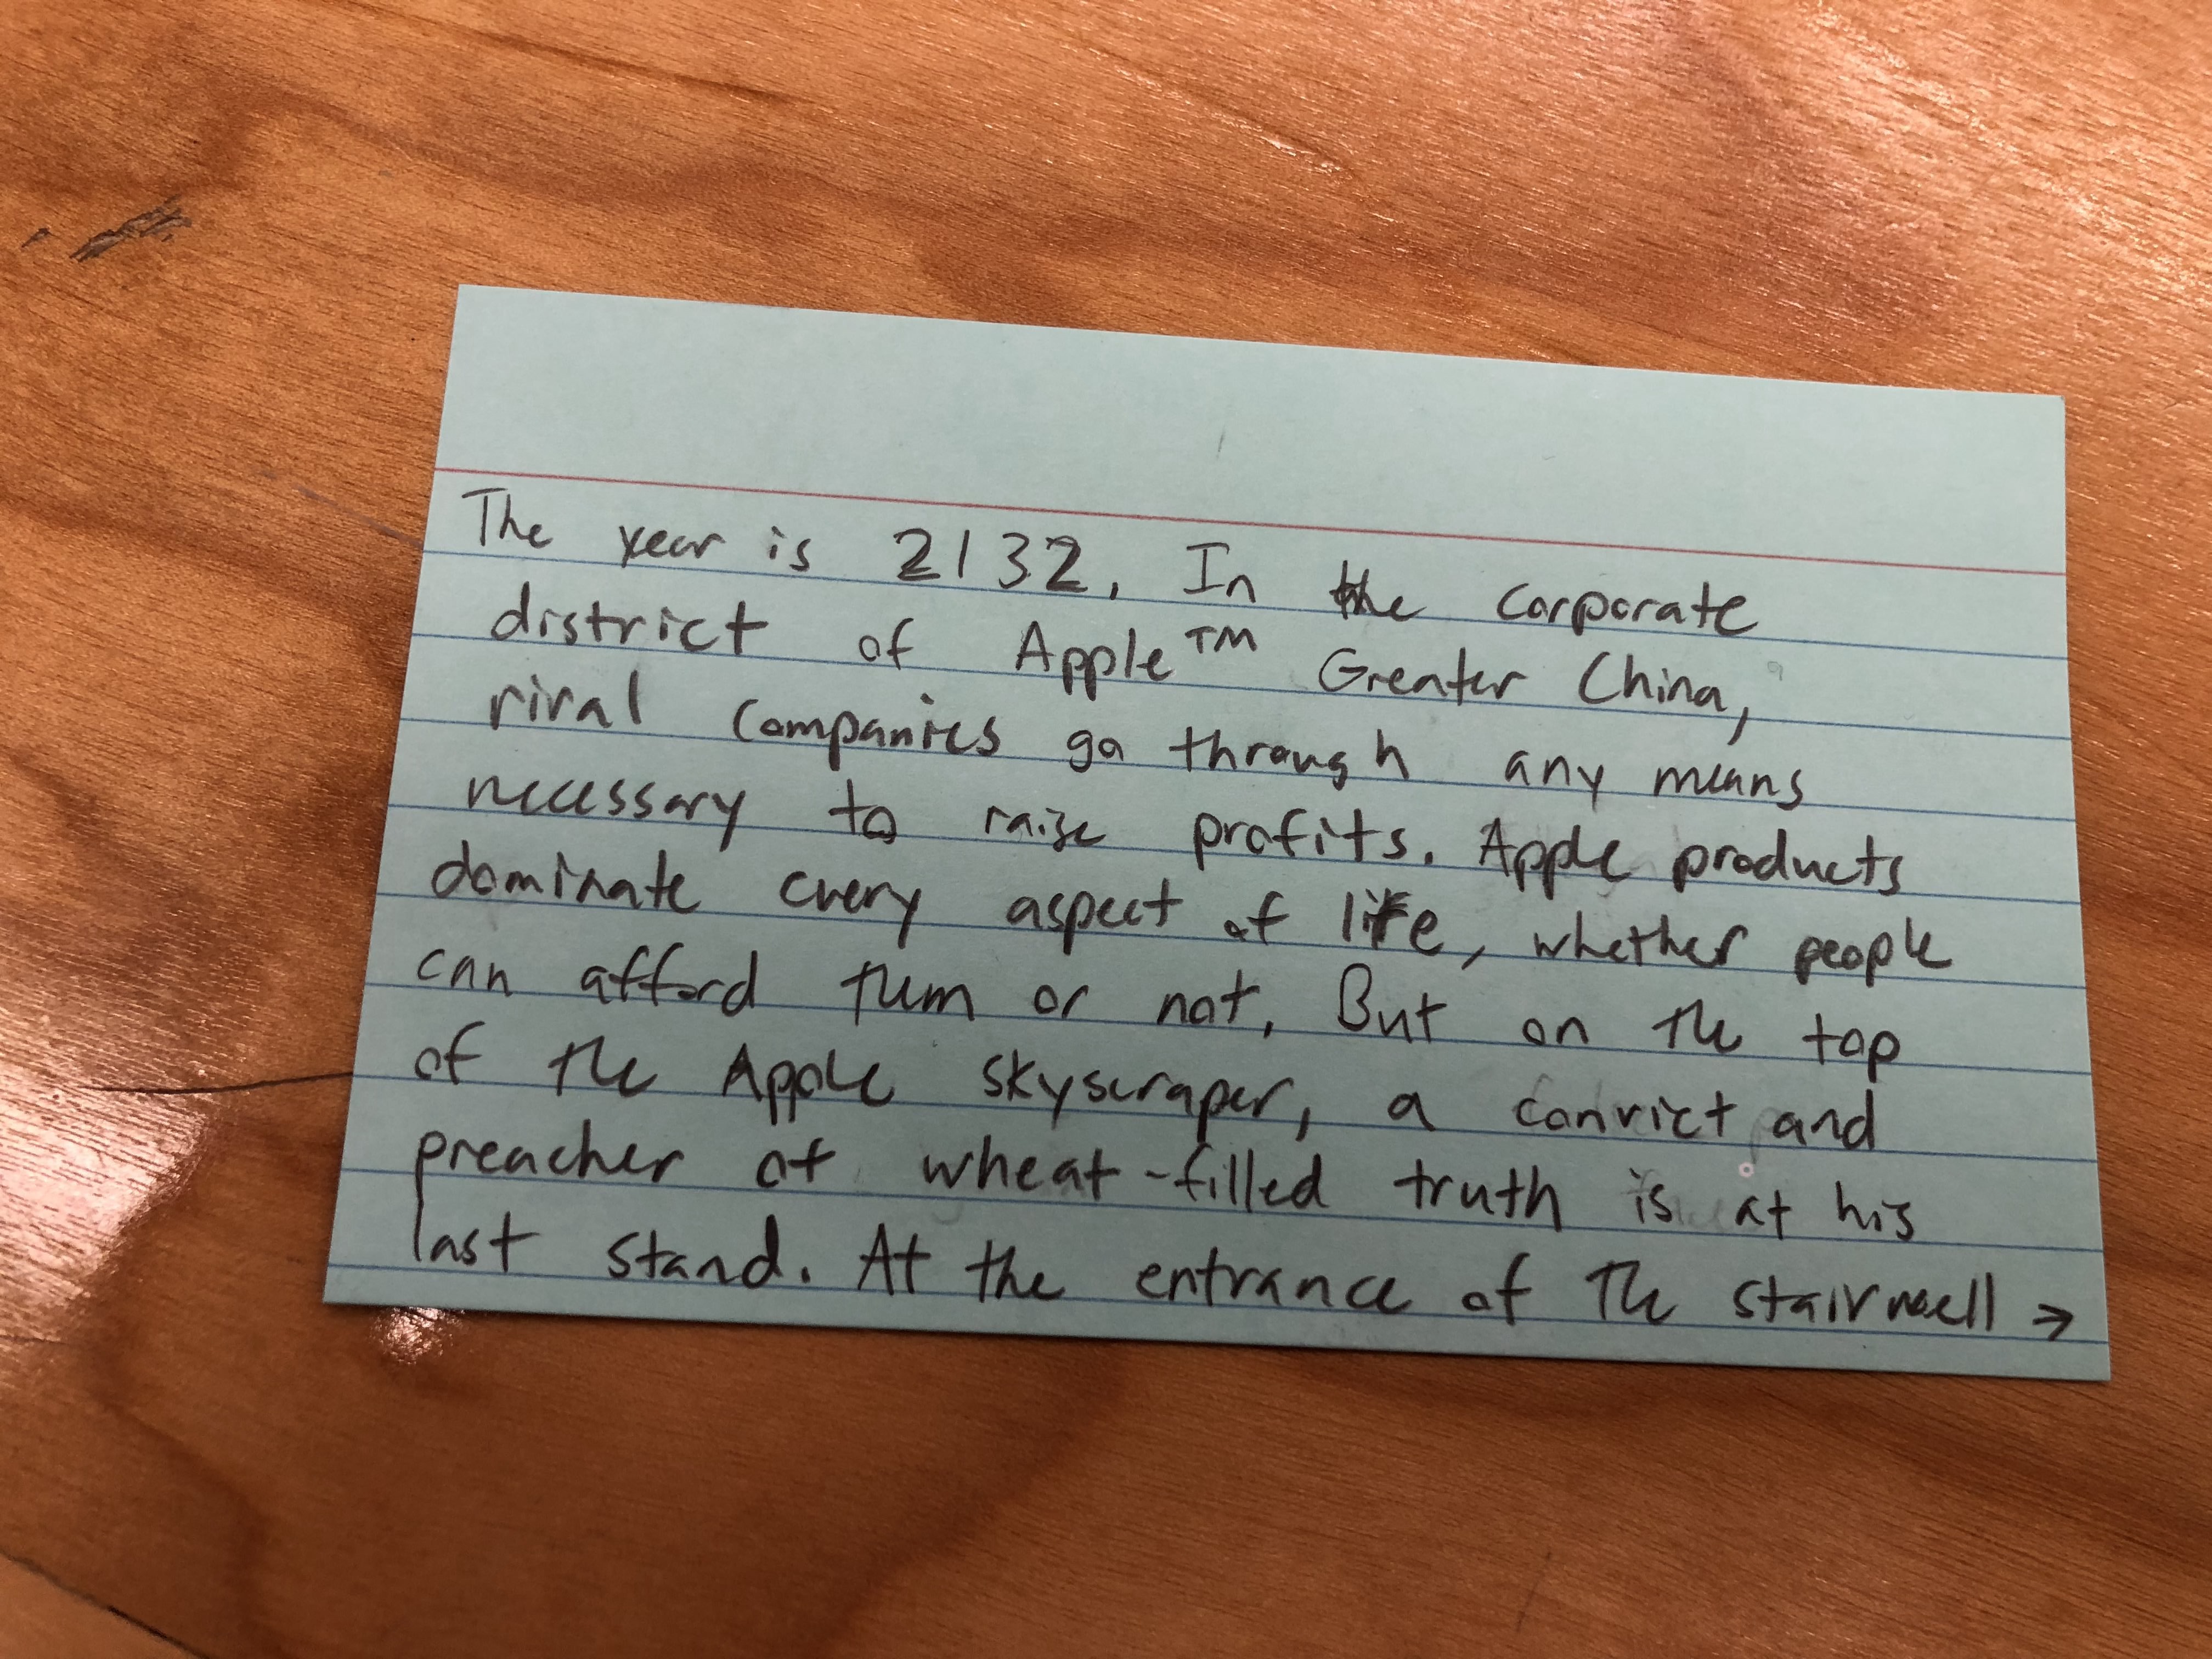 The year is 2132. In the corporate
district of Apple™ Greater China,
rival companies go through any means
necessary to raise profits. Apple products
dominate every aspect of life, whether people
can afford them or not. But on the top
of the Apple skyscraper, a convict and
preacher of wheat-filled truth is at his
last stand. At the entrance of the stairwell →